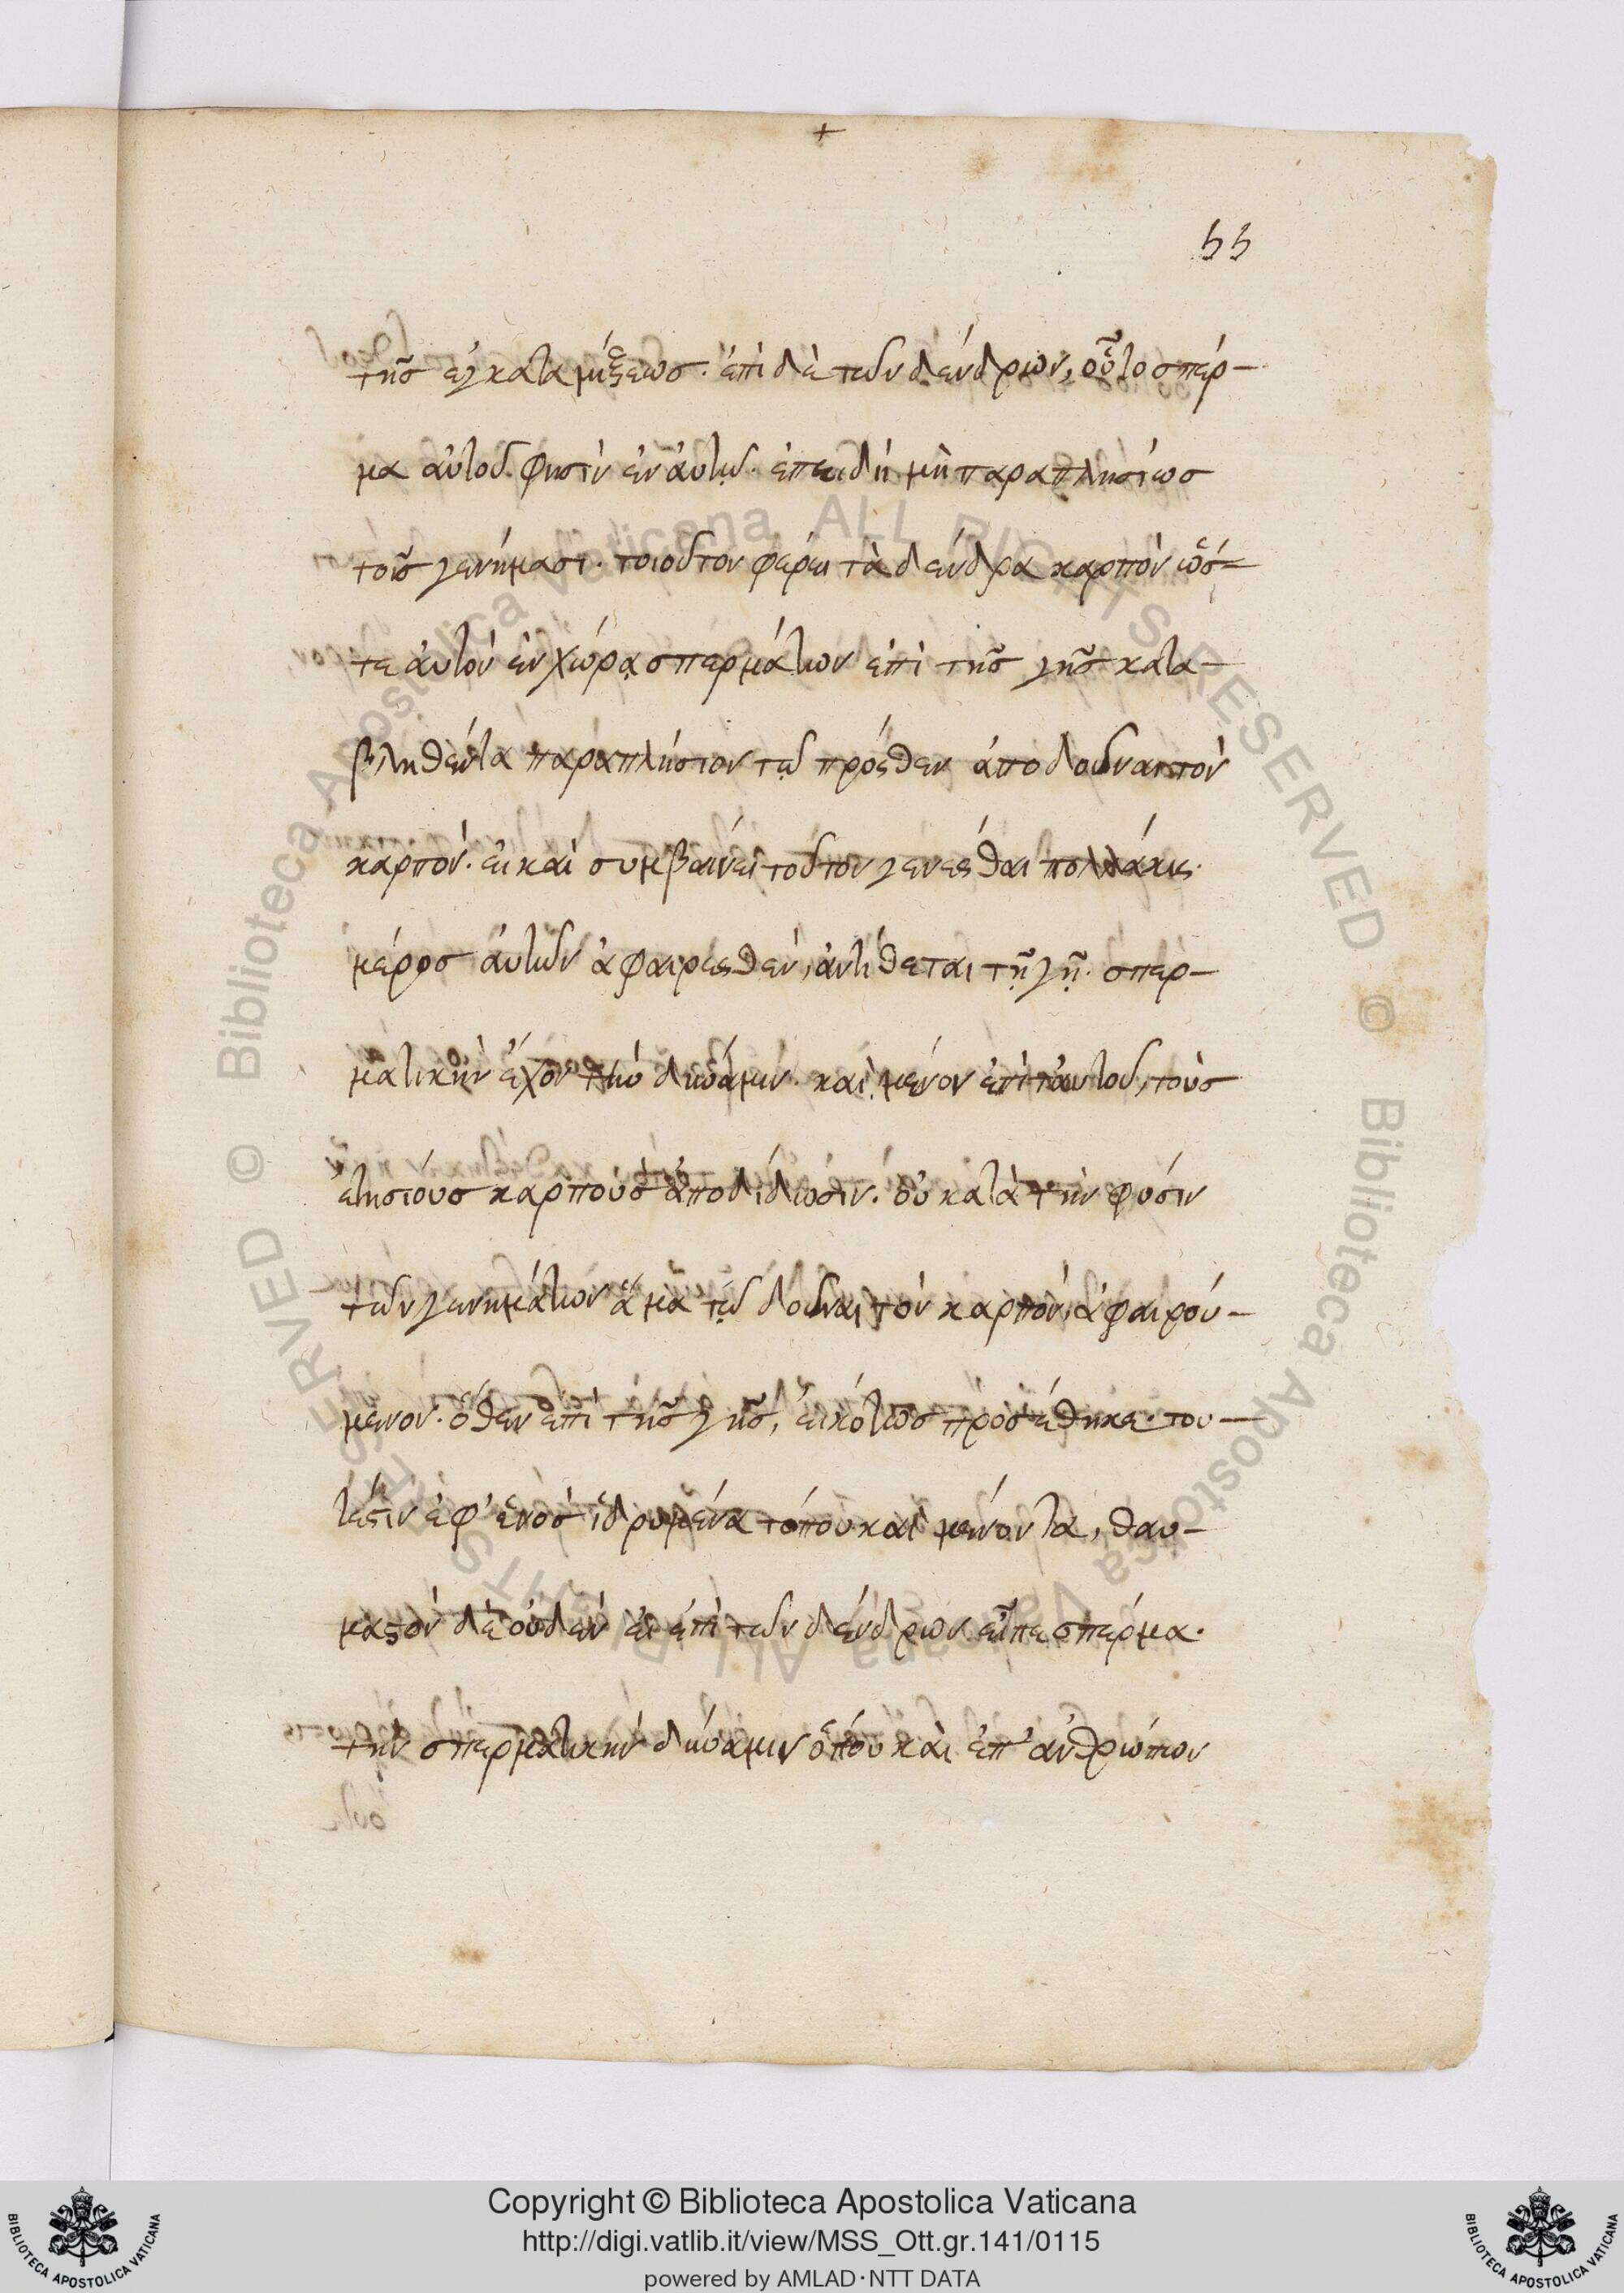 +
55
τῆς ἐγκαταμίξεως. ἐπὶ δὲ τῶν δένδρων, οὗ τὸ σπέρ-
μα αὐτοῦ. φησὶν ἐν αὐτῷ. ἐπειδὴ μὴ παραπλησίως
τοῖς γενήμασι. τοιοῦτον φέρει τὰ δένδρα καρπὸν ὥσ-
τε αὐτὸν ἐν χώρᾳ σπερμάτων ἐπὶ τῆς γῆς κατα-
βληθέντα παραπλήσιον τῷ πρόσθεν ἀποδοῦναι τὸν
καρπόν. εἰ καὶ συμβαίνει τοῦτον γενέσθαι πολλάκις.
μέρος αὐτῶν ἀφαιρεσθέν, ἀντίθεται τῇ γῇ. σπερ-
ματικὴν ἔχον τὴν δύναμιν. καὶ μένον ἐπὶ ταυτοῦ, τοὺς
ἐτησίους καρποὺς ἀποδίδωσιν. οὐ κατὰ τὴν φύσιν
τῶν γενημάτων ἅμα τῷ δοῦναι τὸν καρπὸν, ἀφαιρού-
μενον. ὅθεν ἐπὶ τῆς γῆς, εἰκότως προσέθηκε. του-
τέστιν ἐφ' ἑνὸς ἱδρυμένα τόπου καὶ μένοντα, θαυ-
μαστὸν δὲ οὐδὲν εἰ ἐπὶ τῶν δένδρων εἶπε σπέρμα.
τὴν σπερματικὴν δύναμιν ὅπου καὶ ἐπ' ἀνθρώπων
Copyright © Biblioteca Apostolica Vaticana
http://digi.vatlib.it/view/MSS_Ott.gr.141/0115
powered by AMLAD·NTT DATA
BIBLIOTECA APOSTOLICA VATICANA
BIBLIOTECA APOSTOLICA VATICANA
© Biblioteca Apostolica Vaticana ALL RIGHTS RESERVED
© Biblioteca Apostolica Vaticana ALL RIGHTS RESERVED